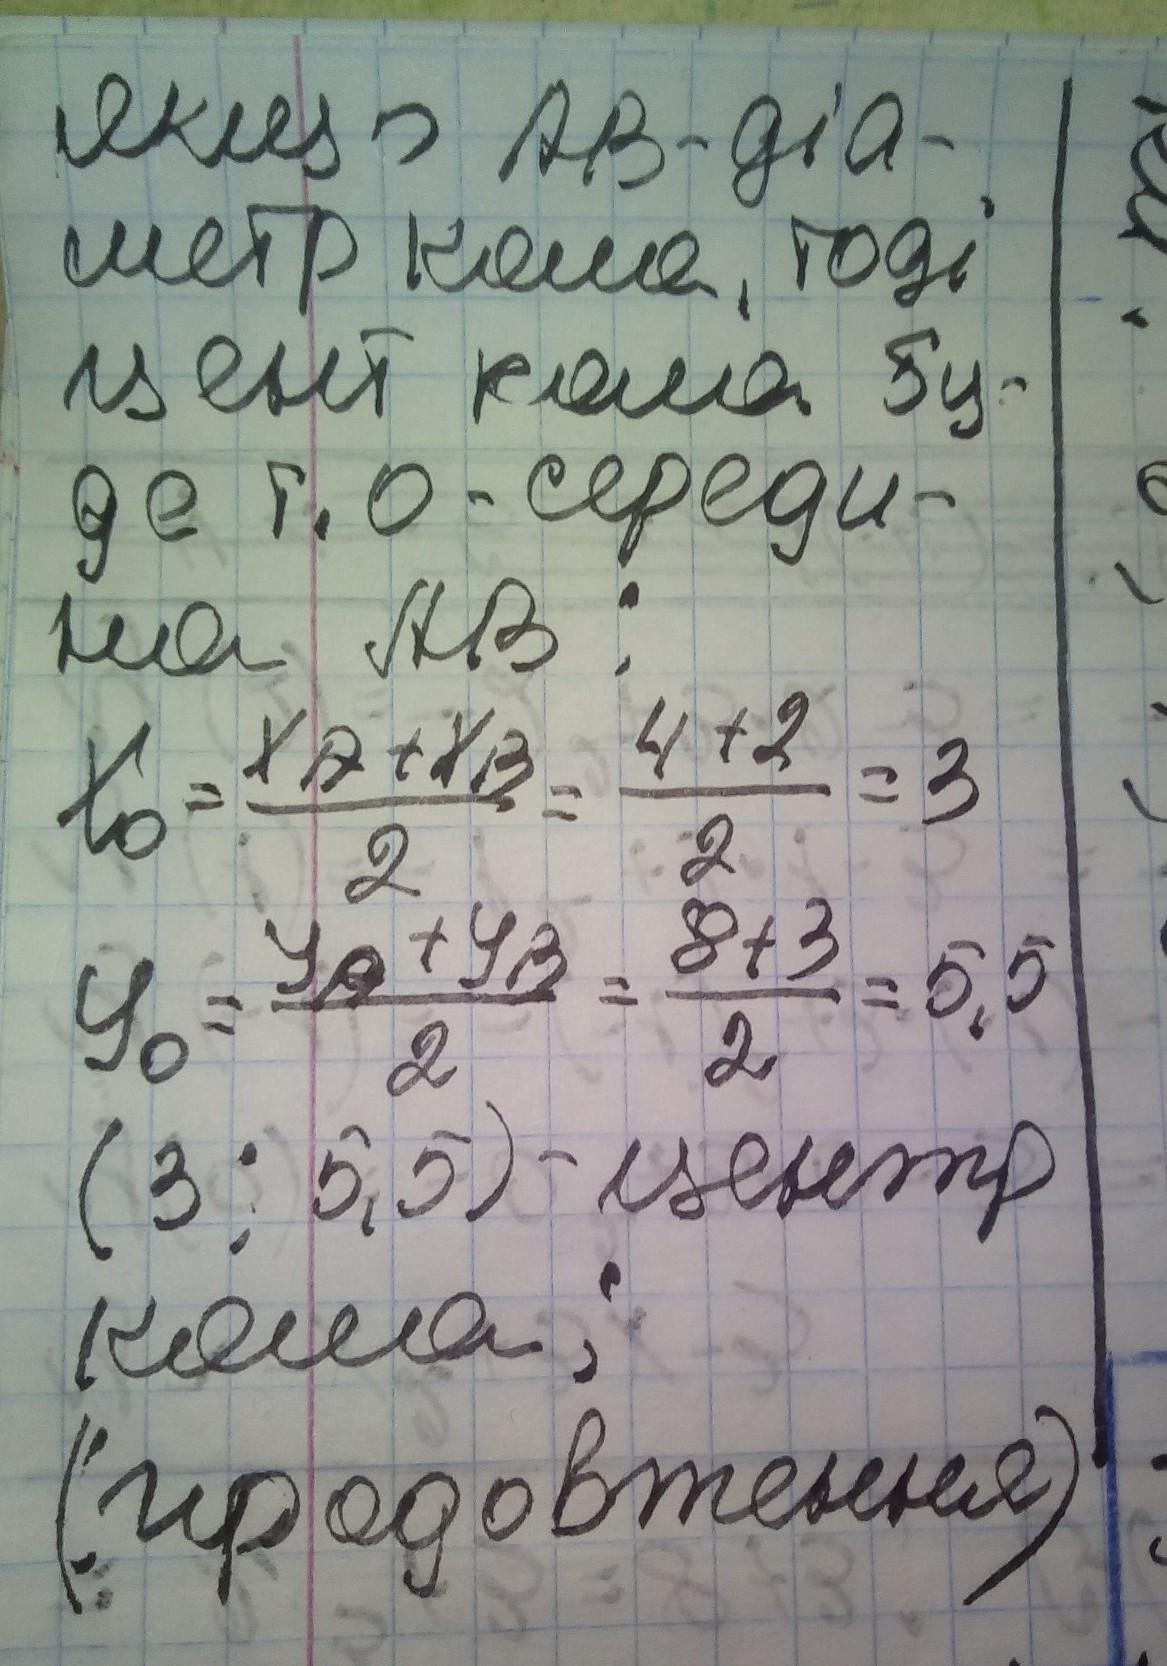 якщо AB-діа-
метр кола, тоді
цент кола бу-
де т. O - середи-
на AB:
x₀ = (xA + xB)/2 = (4+2)/2 = 3
y₀ = (yA + yB)/2 = (8+3)/2 = 5,5
(3; 5,5) - центр
кола;
(продовження)